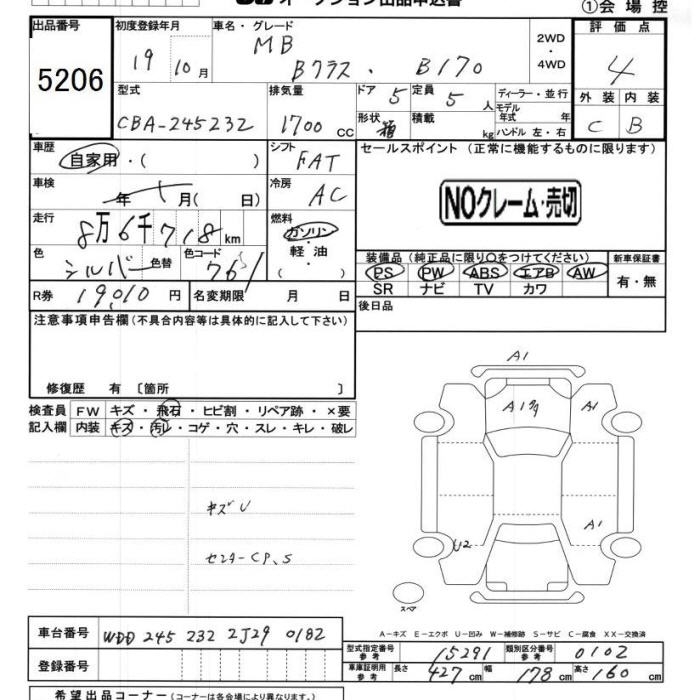 オークション出品申込書
①会場控
出品番号
5206
初度登録年月
19 10月
車名・グレード
MB
Bクラス・B170
2WD
・
4WD
評価点
4
型式
CBA-245232
排気量
1700 cc
ドア 5
定員 5 人
形状 箱
積載 kg
ディーラー・並行
モデル年式 年
ハンドル 左・右
外装 内装
C B
車歴
自家用・( )
シフト
FAT
セールスポイント (正常に機能するものに限ります)
NOクレーム・売切
車検
年 月( 日)
冷房
AC
走行
8万6千718km
燃料
ガソリン
・
軽油
( )
色
シルバー
色替
色コード
761
装備品(純正品に限り○をつけてください)
PS PW ABS エアB AW
SR ナビ TV カワ
新車保証書
有・無
R券 19010円
名変期限 月 日
後日品
注意事項申告欄(不具合内容等は具体的に記入して下さい)
修復歴 有 〔箇所 〕
検査員記入欄
FW キズ・飛石・ヒビ割・リペア跡・×要
内装 キズ・汚レ・コゲ・穴・スレ・キレ・破レ
キズU
センターCP、S
A1
A1
A1
U2
スペア
A-キズ E-エクボ U-凹み W-補修跡 S-サビ C-腐食 XX-交換済
車台番号
WDD 245 232 2J29 0182
登録番号
型式指定番号参考 15291
類別区分番号参考 0102
車庫証明用参考 長さ 427cm 幅 178cm 高さ 160cm
希望出品コーナー(コーナーは各会場により異なります)